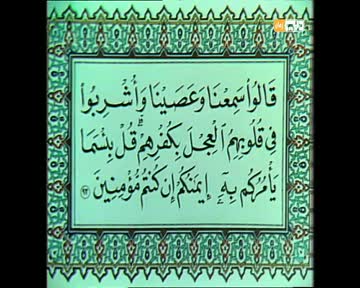 قَالُوا۟ سَمِعْنَا وَعَصَيْنَا وَأُشْرِبُوا۟
فِى قُلُوبِهِمُ ٱلْعِجْلَ بِكُفْرِهِمْ ۚ قُلْ بِئْسَمَا
يَأْمُرُكُم بِهِۦٓ إِيمَٰنُكُمْ إِن كُنتُم مُّؤْمِنِينَ ٩٣